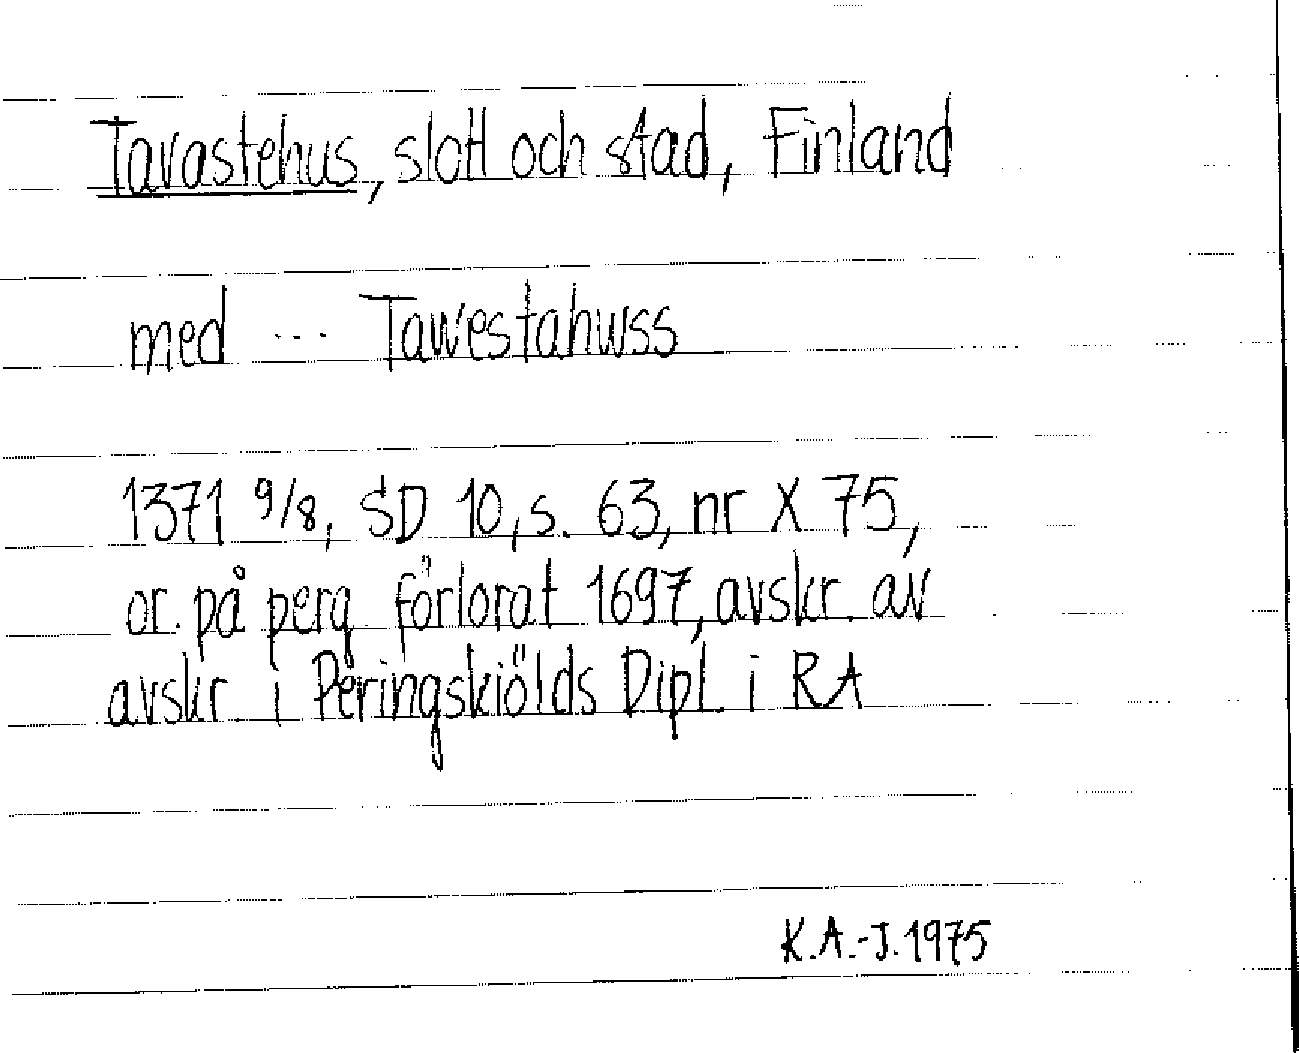 Tavastehus, slott och stad, Finland
med ... Tawestahwss
1371 9/8, SD 10, s. 63, nr X 75,
or. på perg förlorat 1697, avskr. av
avskr i Peringskiölds Dipl i RA
K.A.-J. 1975